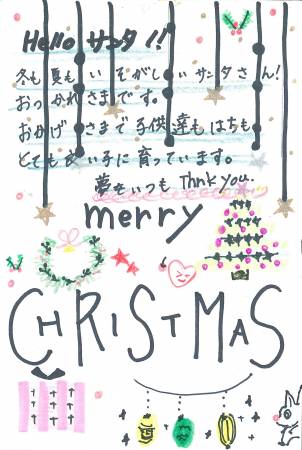 Hello サンタ!!
冬も夏もいそがしいサンタさん!
おつかれさまです。
おかげさまで子供達もはちも
とても良い子に育っています。
夢をいつも Thnk you.
merry
CHRISTMAS